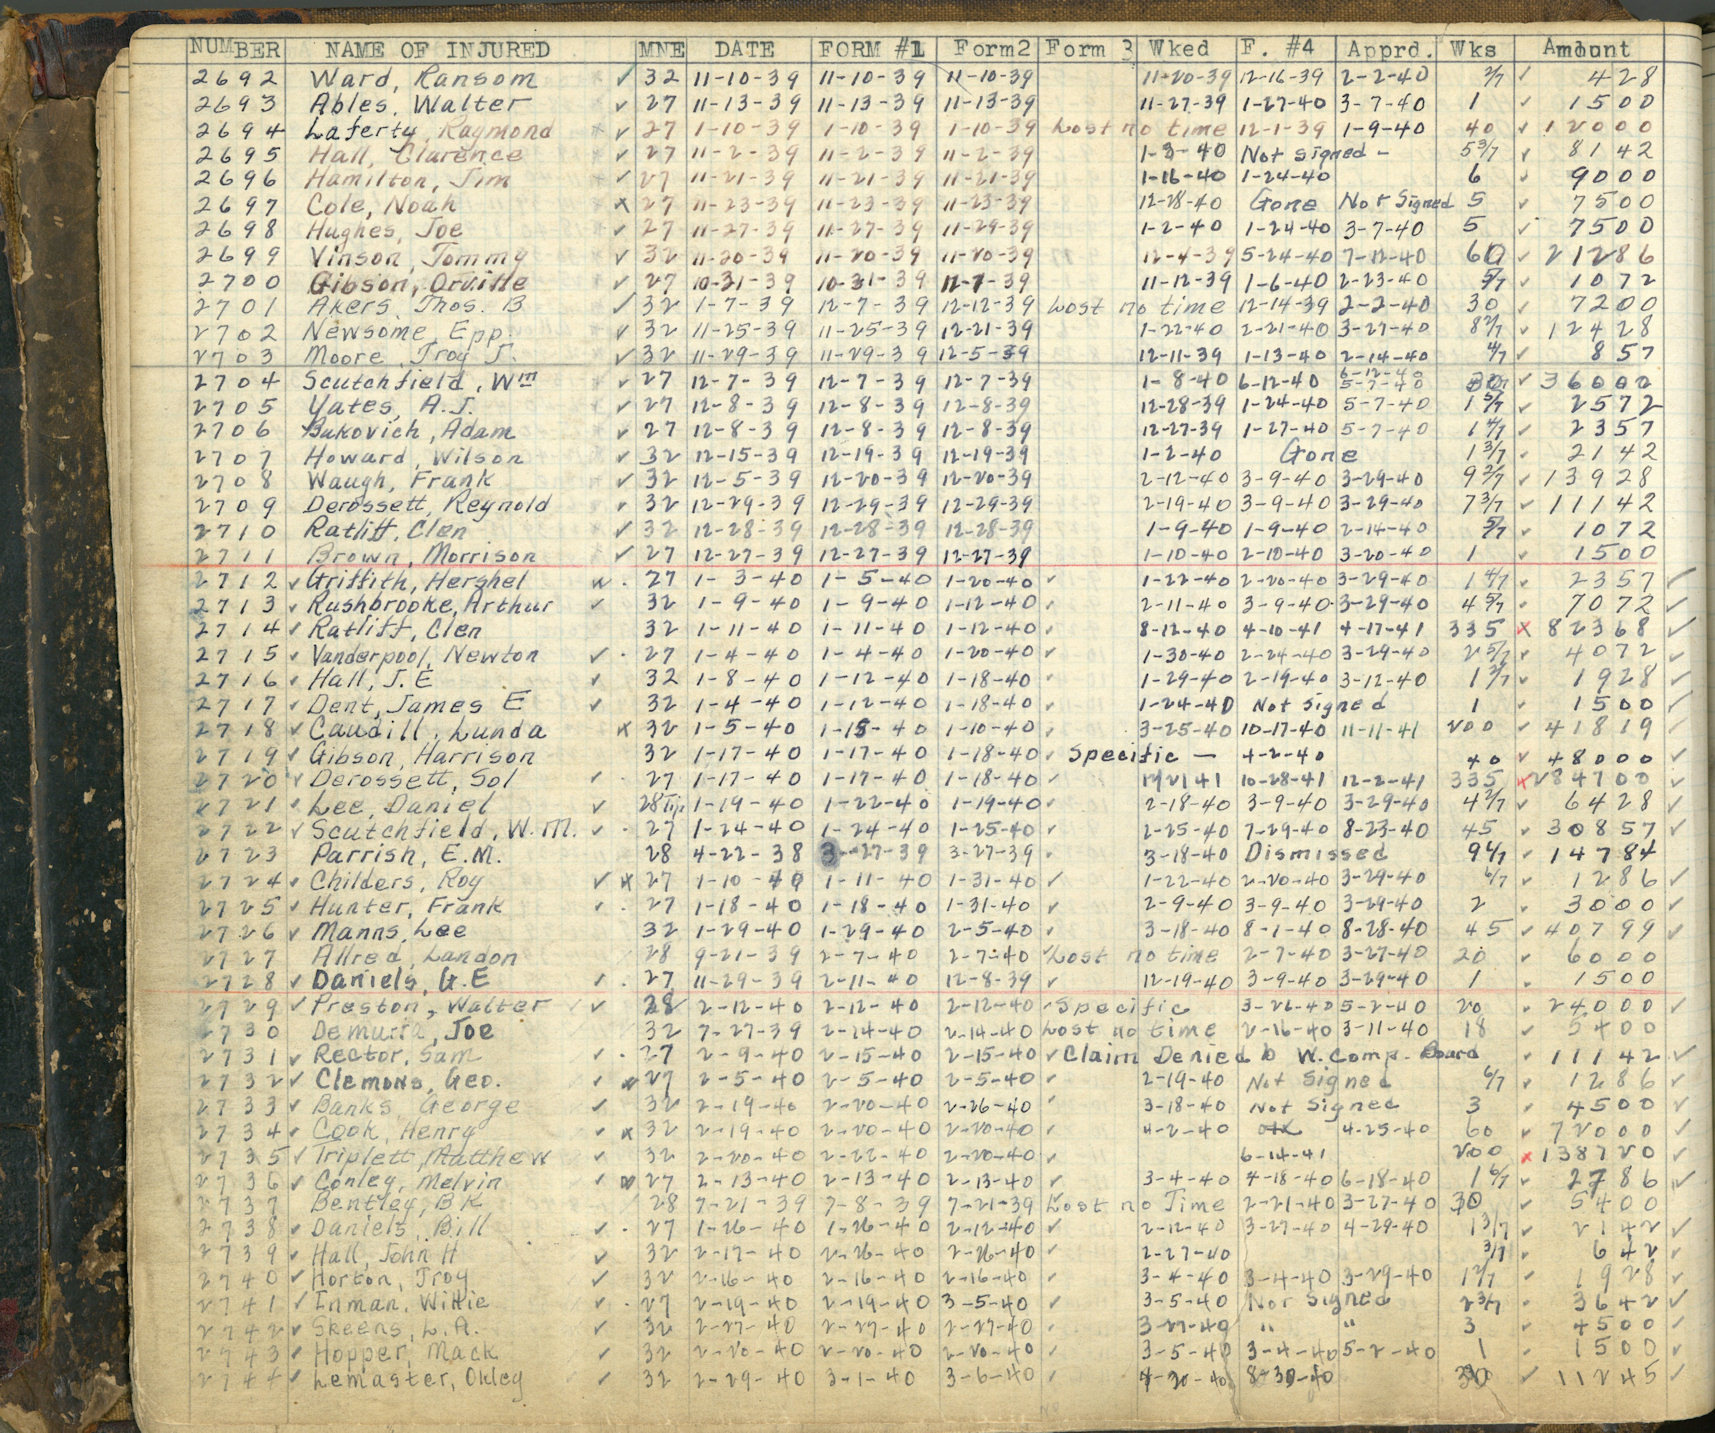 NUMBER NAME OF INJURED MNE DATE FORM #1 Form2 Form 3 Wked F. #4 Apprd. Wks Amount
2692 Ward, Ransom ✓ 32 11-10-39 11-10-39 11-10-39 11-20-39 12-16-39 2-2-40 2/7 ✓ 428
2693 Ables, Walter ✓ 27 11-13-39 11-13-39 11-13-39 11-27-39 1-27-40 3-7-40 1 ✓ 1500
2694 Laferty, Raymond ✓ 27 1-10-39 1-10-39 1-10-39 Lost no time 12-1-39 1-9-40 40 ✓ 12000
2695 Hall, Clarence ✓ 27 11-2-39 11-2-39 11-2-39 1-3-40 Not signed - 5 3/7 ✓ 8142
2696 Hamilton, Jim ✓ 27 11-21-39 11-21-39 11-21-39 1-16-40 1-24-40 6 ✓ 9000
2697 Cole, Noah x 27 11-23-39 11-23-39 11-23-39 12-28-40 Gone Not Signed 5 ✓ 7500
2698 Hughes, Joe ✓ 27 11-27-39 11-27-39 11-29-39 1-2-40 1-24-40 3-7-40 5 ✓ 7500
2699 Vinson, Tommy ✓ 32 11-20-39 11-20-39 11-20-39 12-4-39 5-24-40 7-12-40 60 ✓ 21286
2700 Gibson, Orville ✓ 27 10-31-39 10-31-39 11-7-39 11-12-39 1-6-40 2-23-40 5/7 ✓ 1072
2701 Akers, Thos. B ✓ 32 1-7-39 12-7-39 12-12-39 Lost no time 12-14-39 2-2-40 30 ✓ 7200
2702 Newsome, Epp. ✓ 32 11-25-39 11-25-39 12-21-39 1-22-40 2-21-40 3-27-40 8 2/7 ✓ 12428
2703 Moore, Troy J. ✓ 32 11-29-39 11-29-39 12-5-39 12-11-39 1-13-40 2-14-40 4/7 ✓ 857
2704 Scutchfield, Wm ✓ 27 12-7-39 12-7-39 12-7-39 1-8-40 6-12-40 6-12-40 5-7-40 ✓ 36000
2705 Yates, A.J. ✓ 27 12-8-39 12-8-39 12-8-39 12-28-39 1-24-40 5-7-40 1 5/7 ✓ 2572
2706 Bukovich, Adam ✓ 27 12-8-39 12-8-39 12-8-39 12-27-39 1-27-40 5-7-40 1 4/7 ✓ 2357
2707 Howard, Wilson ✓ 32 12-15-39 12-19-39 12-19-39 1-2-40 Gone 1 3/7 ✓ 2142
2708 Waugh, Frank ✓ 32 12-5-39 12-20-39 12-20-39 2-12-40 3-9-40 3-29-40 9 2/7 ✓ 13928
2709 Derossett, Reynold ✓ 32 12-29-39 12-29-39 12-29-39 2-19-40 3-9-40 3-29-40 7 3/7 ✓ 11142
2710 Ratliff, Clen ✓ 32 12-28-39 12-28-39 12-28-39 1-9-40 1-9-40 2-14-40 5/7 ✓ 1072
2711 Brown, Morrison ✓ 27 12-27-39 12-27-39 12-27-39 1-10-40 2-10-40 3-20-40 1 ✓ 1500
2712 ✓ Griffith, Hershel 27 1-3-40 1-5-40 1-20-40 ✓ 1-22-40 2-20-40 3-29-40 1 4/7 ✓ 2357 ✓
2713 ✓ Rushbrooke, Arthur ✓ 32 1-9-40 1-9-40 1-12-40 ✓ 2-11-40 3-9-40 3-29-40 4 5/7 ✓ 7072 ✓
2714 ✓ Ratliff, Clen 32 1-11-40 1-11-40 1-12-40 ✓ 8-12-40 4-10-41 4-17-41 335 x 82368 ✓
2715 ✓ Vanderpool, Newton ✓ 27 1-4-40 1-4-40 1-20-40 ✓ 1-30-40 2-24-40 3-29-40 2 5/7 ✓ 4072 ✓
2716 ✓ Hall, J.E ✓ 32 1-8-40 1-12-40 1-18-40 ✓ 1-29-40 2-19-40 3-12-40 1 2/7 ✓ 1928 ✓
2717 ✓ Dent, James E ✓ 32 1-4-40 1-12-40 1-18-40 ✓ 1-24-40 Not Signed 1 ✓ 1500 ✓
2718 ✓ Caudill, Lunda x 32 1-5-40 1-15-40 1-10-40 ✓ 3-25-40 10-17-40 11-11-41 200 ✓ 41819 ✓
2719 ✓ Gibson, Harrison 32 1-17-40 1-17-40 1-18-40 ✓ Specific — 4-2-40 40 ✓ 48000 ✓
2720 ✓ Derossett, Sol ✓ 27 1-17-40 1-17-40 1-18-40 ✓ 10-28-41 12-2-41 335 x 284700 ✓
2721 ✓ Lee, Daniel ✓ 28 Tip 1-19-40 1-22-40 1-19-40 ✓ 2-18-40 3-9-40 3-29-40 4 2/7 ✓ 6428 ✓
2722 ✓ Scutchfield, W.M. ✓ 27 1-24-40 1-24-40 1-25-40 ✓ 2-25-40 7-29-40 8-23-40 45 ✓ 30857 ✓
2723 Parrish, E.M. 28 4-22-38 3-27-39 3-27-39 3-18-40 Dismissed 9 6/7 ✓ 14784
2724 ✓ Childers, Roy ✓ x 27 1-10-40 1-11-40 1-31-40 ✓ 1-22-40 2-20-40 3-29-40 6/7 ✓ 1286 ✓
2725 ✓ Hunter, Frank ✓ 27 1-18-40 1-18-40 1-31-40 ✓ 2-9-40 3-9-40 3-29-40 2 ✓ 3000 ✓
2726 ✓ Manns, Lee 32 1-29-40 1-29-40 2-5-40 ✓ 3-18-40 8-1-40 8-28-40 45 ✓ 40799 ✓
2727 Allred, Landon 28 9-21-39 2-7-40 2-7-40 ✓ Lost no time 2-7-40 3-27-40 20 ✓ 6000
2728 ✓ Daniels, G.E ✓ 27 11-29-39 2-11-40 12-8-39 ✓ 12-19-40 3-9-40 3-29-40 1 ✓ 1500
2729 ✓ Preston, Walter ✓ 28 2-12-40 2-12-40 2-12-40 ✓ Specific 3-26-40 5-2-40 20 ✓ 24000 ✓
2730 Demurra, Joe 32 7-27-39 2-14-40 2-14-40 Lost no time 2-16-40 3-11-40 18 ✓ 5400
2731 ✓ Rector, Sam ✓ 27 2-9-40 2-15-40 2-15-40 ✓ Claim Denied b W. Comp. Board ✓ 11142 ✓
2732 ✓ Clemons, Geo. ✓ 27 2-5-40 2-5-40 2-5-40 ✓ 2-19-40 Not Signed 6/7 ✓ 1286 ✓
2733 ✓ Banks, George ✓ 32 2-19-40 2-20-40 2-26-40 ✓ 3-18-40 Not Signed 3 ✓ 4500 ✓
2734 ✓ Cook, Henry ✓ x 32 2-19-40 2-20-40 2-20-40 ✓ 4-2-40 4-25-40 60 ✓ 72000 ✓
2735 ✓ Triplett, Matthew ✓ 32 2-20-40 2-22-40 2-20-40 ✓ 6-14-41 200 x 138720 ✓
2736 ✓ Conley, Melvin ✓ 27 2-13-40 2-13-40 2-13-40 ✓ 3-4-40 4-18-40 6-18-40 1 6/7 ✓ 2786 ✓
2737 Bentley, B K 28 7-21-39 7-8-39 7-21-39 Lost no Time 2-21-40 3-27-40 30 ✓ 5400
2738 ✓ Daniels, Bill ✓ 27 1-26-40 1-26-40 2-12-40 ✓ 2-12-40 3-27-40 4-29-40 1 3/7 ✓ 2142 ✓
2739 ✓ Hall, John H ✓ 32 2-17-40 2-26-40 2-26-40 ✓ 2-27-40 3/7 ✓ 642 ✓
2740 ✓ Horton, Troy ✓ 32 2-16-40 2-16-40 2-16-40 ✓ 3-4-40 3-4-40 3-29-40 1 2/7 ✓ 1928 ✓
2741 ✓ Inman, Willie ✓ 27 2-19-40 2-19-40 3-5-40 ✓ 3-5-40 Not Signed 2 3/7 ✓ 3642 ✓
2742 ✓ Skeens, L.A. ✓ 32 2-27-40 2-27-40 2-27-40 ✓ 3-27-40 " " 3 ✓ 4500 ✓
2743 ✓ Hopper, Mack ✓ 32 2-20-40 2-20-40 2-20-40 ✓ 3-5-40 3-4-40 5-2-40 1 ✓ 1500 ✓
2744 ✓ Lemaster, Okley ✓ 32 2-29-40 3-1-40 3-6-40 ✓ 4-20-40 8-30-40 30 ✓ 11245 ✓